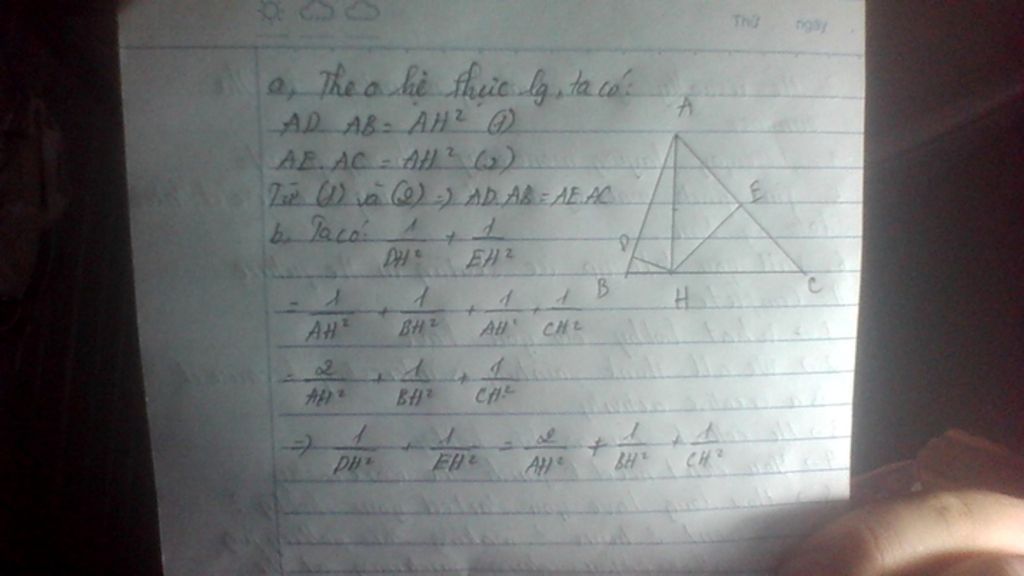 Thứ ngày
a, Theo hệ thức lg, ta có:
AD. AB = AH² (1)
AE. AC = AH² (2)
Từ (1) và (2) => AD.AB = AE.AC
b, Ta có: 1/DH² + 1/EH²
= 1/AH² + 1/BH² + 1/AH² + 1/CH²
= 2/AH² + 1/BH² + 1/CH²
=> 1/DH² + 1/EH² = 2/AH² + 1/BH² + 1/CH²
A
E
D
B
H
C